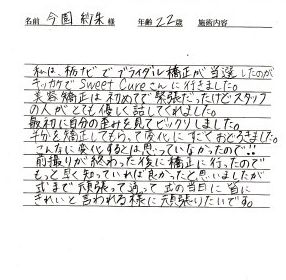 名前 今園 紗朱 様 年齢 22歳 施術内容
私は、栃ナビでブライダル矯正が当選したのが
キッカケでSweet Cureさんに行きました。
美容矯正は初めてで緊張だったけどスタッフ
の人がとても優しく話してくれました。
最初に自分の歪みを見てビックリしました。
半分を矯正してもらって変化にすごくおどろきました。
こんなに変化するとは思っていなかったので!!
前撮りが終わった後に矯正に行ったので
もっと早く知っていれば良かったと思いましたが
式まで頑張って通って式の当日に皆に
きれいと言われる様に頑張りたいです。